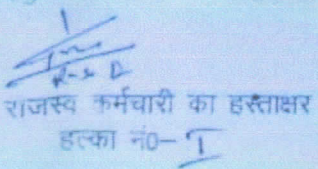 राजस्व कर्मचारी का हस्ताक्षर
हल्का नं०- I